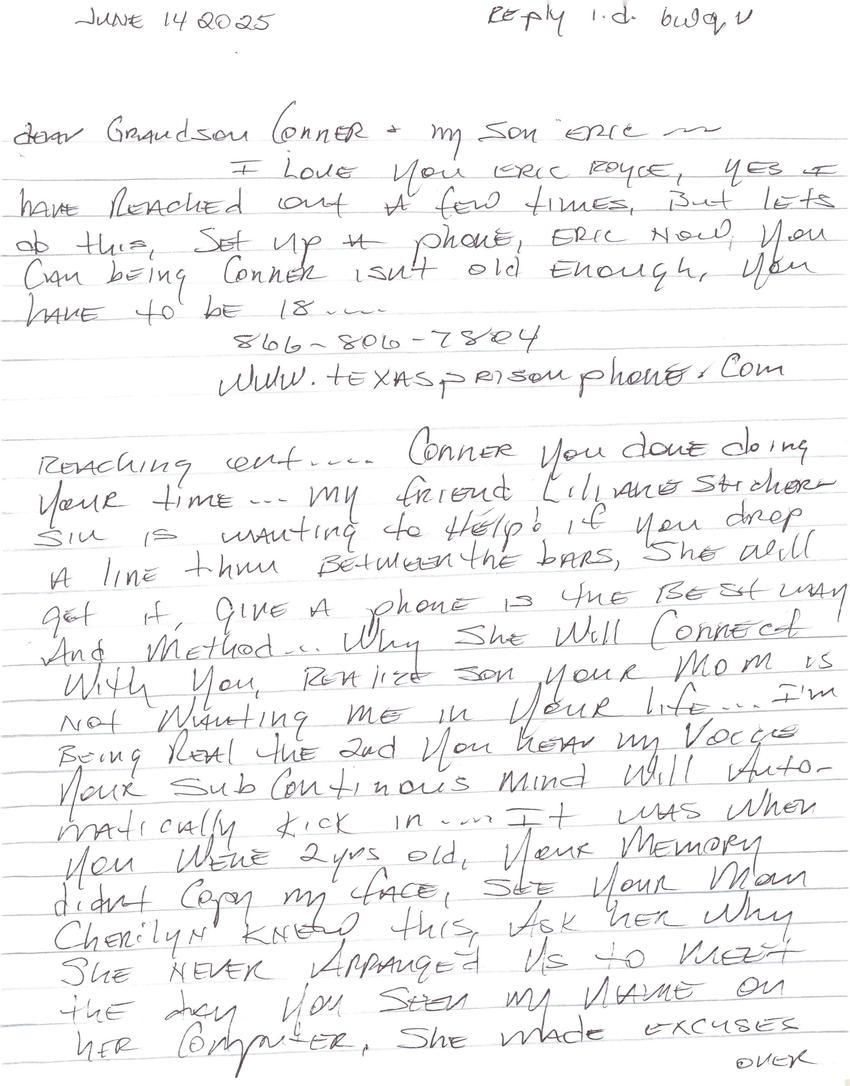 JUNE 14 2025 Reply i.d. bwq,v
dear Grandson Conner + my son ERIC
I LOVE you ERIC ROYCE, YES I
have Reached out A few times, But lets
do this, Set up A phone, ERIC NOW, You
Can being Conner isn't old Enough, you
have to be 18....
866-806-7804
WWW.texasprisonphone.Com
REACHING out.... Conner you done doing
your time... my friend Liliane
is wanting to HELP! if you drop
A line thru BETWEEN the bars, She will
get it, GIVE A phone is the BEST WAY
And Method... Why She Will Connect
With You, REALIZE son your Mom is
Not Wanting ME in Your life... I'm
Being Real the 2nd You hear my Voice
Your SubContinous mind Will Auto-
matically kick in.... It was When
You WERE 2 yrs old, Your MEMORY
didnt Copy my FACE, SEE Your Mom
CHERILYN KNEW this, ASK her Why
SHE NEVER ARRANGED US to MEET
the day You SEEN my NAME ON
her Computer, She made EXCUSES
OVER